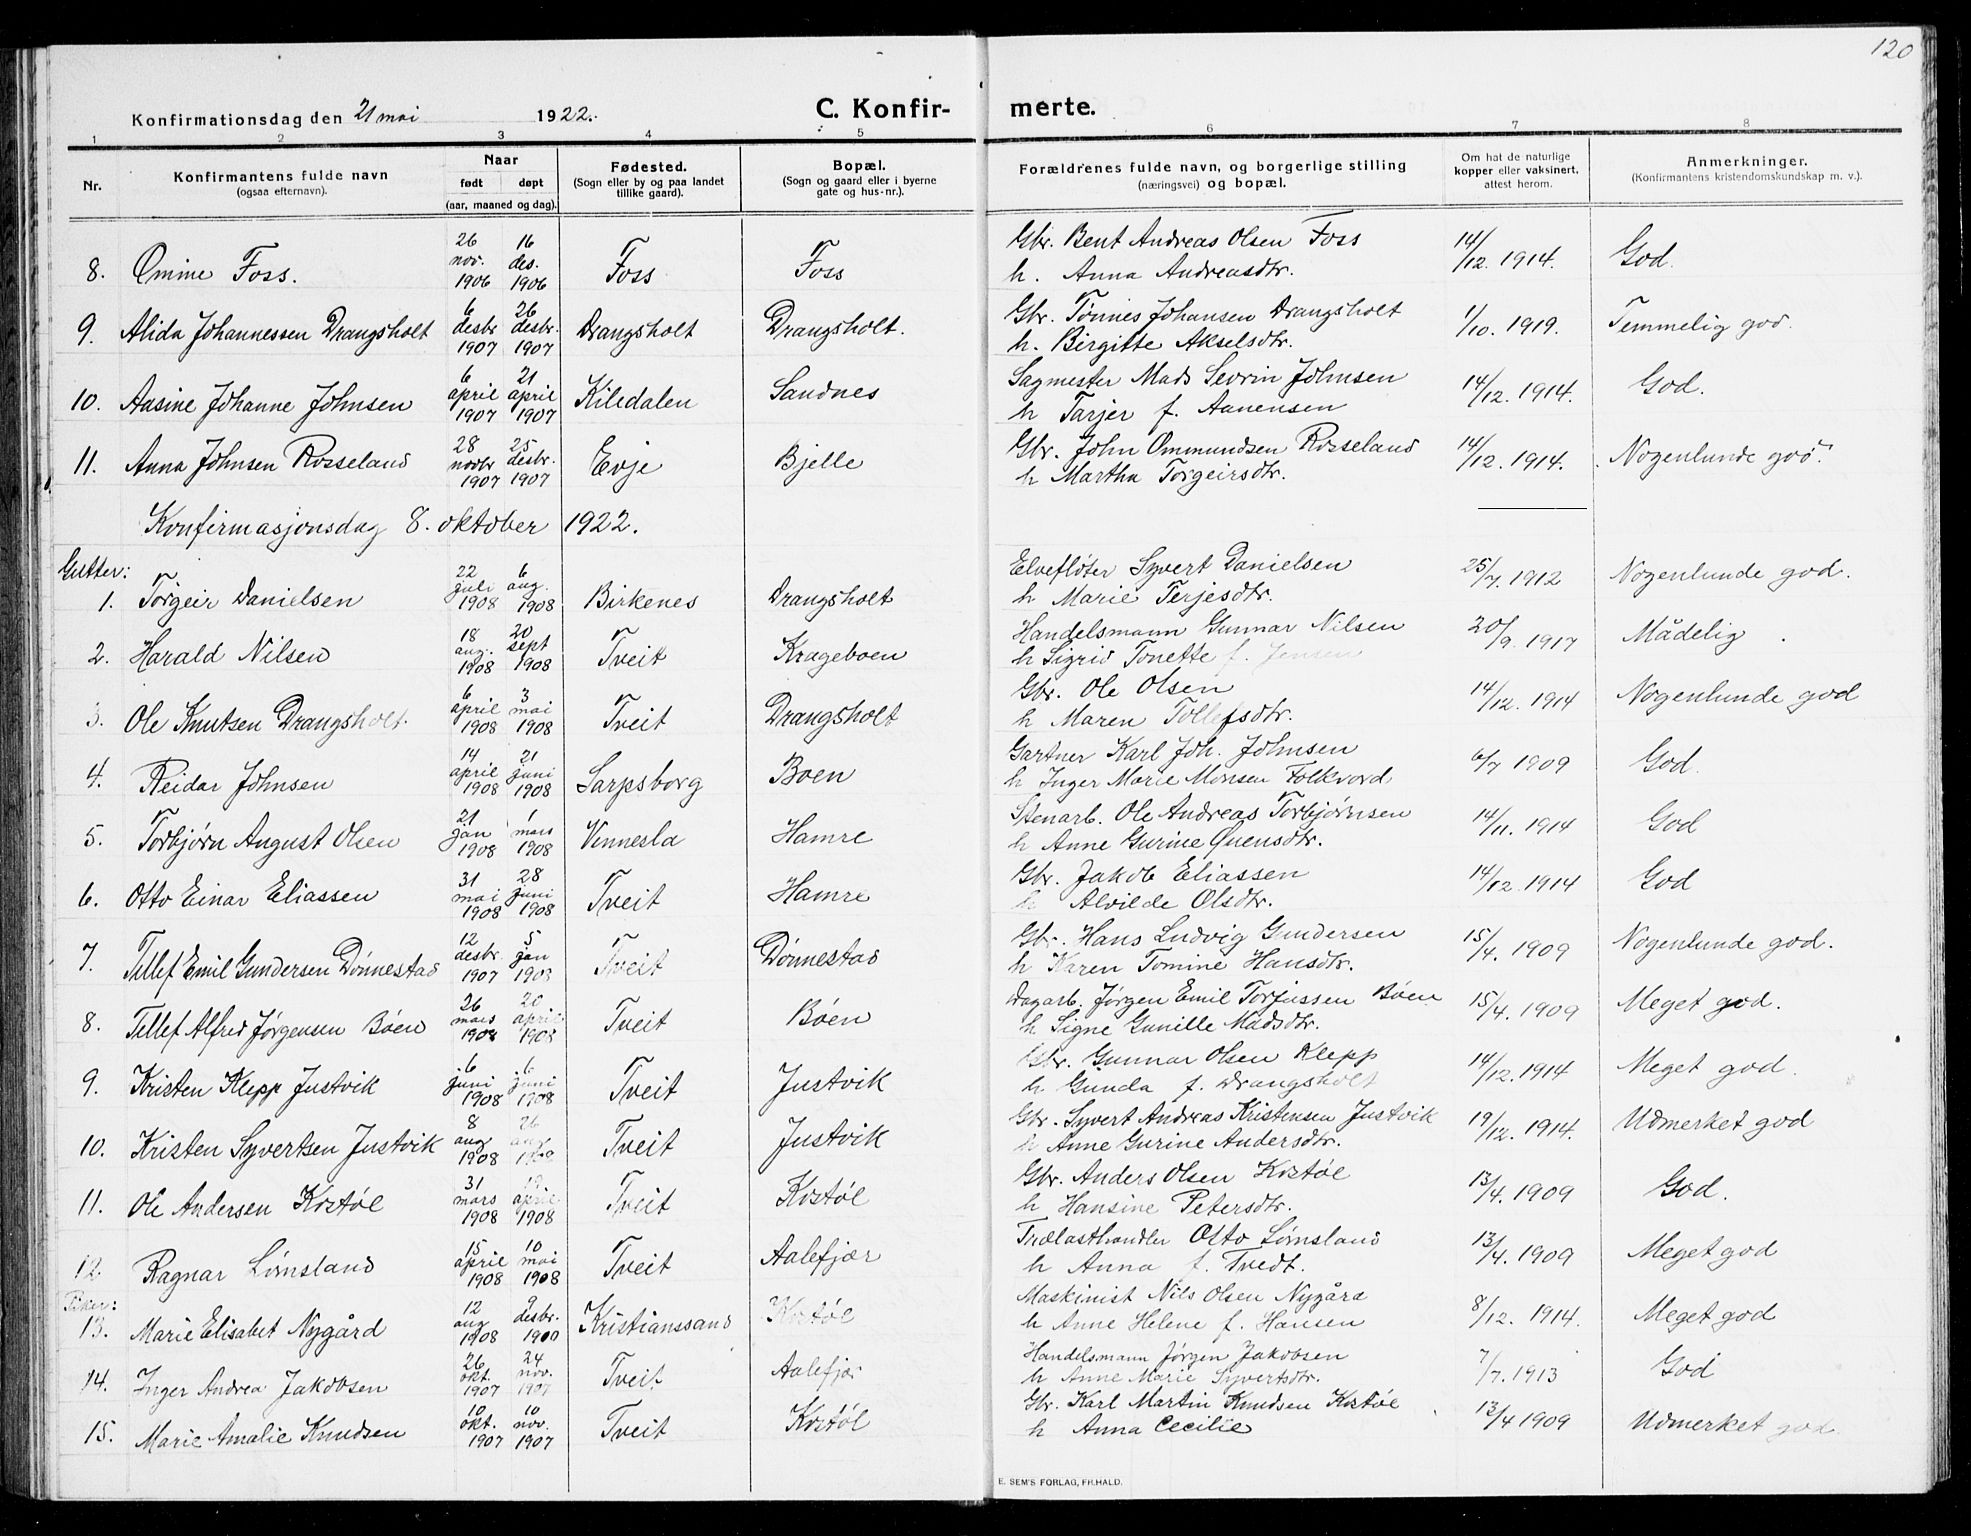 120
Konfirmationsdag den 21 mai 1922.
C. Konfir-merte.
1 2 3 4 5 6 7 8
Nr.
Konfirmantens fulde navn
(ogsaa efternavn).
Naar
født døpt
(aar, maaned og dag).
Fødested.
(Sogn eller by og paa landet
tillike gaard).
Bopæl.
(Sogn og gaard eller i byerne
gate og hus-nr.).
Forældrenes fulde navn, og borgerlige stilling
(næringsvei) og bopæl.
Om hat de naturlige
kopper eller vaksinert,
attest herom.
Anmerkninger.
(Konfirmantens kristendomskundskap m. v.).
8. Omine Foss. 26 nov. 1906 16 des. 1906 Foss Foss Gbr. Bent Andreas Olsen Foss
h. Anna Andreasdtr. 14/12. 1914. God.
9. Alida Johannessen Drangsholt 6 desbr 1907 26 desbr. 1907 Drangsholt Drangsholt. Gbr. Tønnes Johansen Drangsholt
h. Birgitte Akselsdtr. 1/10. 1919. Temmelig god.
10. Aasine Johanne Johnsen 6 april 1907 21 april 1907 Kiledalen Sandnes Sagmester Mads Sevrin Johnsen
h Tarjer f. Aanensen 14/12. 1914. God.
11. Anna Johnsen Rosseland 28 novbr 1907 25 desbr. 1907 Evje Bjelle Gbr. John Ommundsen Rosseland
h Martha Torgeirsdtr. 14/12. 1914. Nogenlunde god.
Konfirmasjonsdag 8. oktober 1922.
Gutter:
1. Torgeir Danielsen 22 juli 1908 6 aug. 1908 Birkenes Drangsholt Elvefløter Syvert Danielsen
h Marie Terjesdtr. 25/7. 1912 Nogenlunde god.
2. Harald Nilsen 18 aug. 1908 20 sept 1908 Tveit Krageboen Handelsmann Gunnar Nilsen
h Sigrid Tonette f. Jensen 20/9. 1917 Mådelig.
3. Ole Knutsen Drangsholt. 6 april 1908 3 mai 1908 Tveit Drangsholt Gbr. Ole Olsen
h Maren Tollefsdtr. 14/12. 1914 Nogenlunde god
4. Reidar Johnsen 14 april 1908 21 juni 1908 Sarpsborg Boen Gartner Karl Joh. Johnsen
h Inger Marie Monsen Folkvord 6/7 1909 God.
5. Torbjørn August Olsen 21 jan 1908 1 mars 1908 Vennesla Hamre Stenarb. Ole Andreas Torbjørnsen
h Anne Gurine Øuensdtr. 14/11. 1914 God
6. Otto Einar Eliassen 31 mai 1908 28 juni 1908 Tveit Hamre Gbr. Jakob Eliassen
h Alvilde Olsdtr. 14/12. 1914 God
7. Tellef Emil Gundersen Dønnestad 12 desbr. 1907 5 jan 1908 Tveit Dønnestad Gbr. Hans Ludvig Gundersen
h Karen Tomine Hansdtr. 15/4. 1909 Nogenlunde god.
8. Tellef Alfred Jørgensen Bøen 26 mars 1908 20 april 1908 Tveit Bøen Dagarb. Jørgen Emil Torjussen Bøen
h Signe Gunille Madsdtr. 15/4. 1909 Meget god.
9. Kristen Klepp Justvik 6 juni 1908 6 juni 1908 Tveit Justvik Gbr. Gunnar Olsen Klepp
h Gunda f. Drangsholt 14/12. 1914 Meget god.
10. Kristen Syvertsen Justvik 8 aug 1908 26 aug 1908 Tveit Justvik Gbr. Syvert Andreas Kristensen Justvik
h Anne Gurine Andersdtr. 19/12. 1914. Udmerket god
11. Ole Andersen Kostøl 31 mars 1908 19 april 1908 Tveit Kostøl Gbr. Anders Olsen Kostøl
h Hansine Petersdtr. 13/4. 1909 God.
12. Ragnar Lømsland 15 april 1908 10 mai 1908 Tveit Aalefjær Trælasthandler Otto Lømsland
h Anna f. Tvedt. 13/4. 1909 Meget god
Piker:
13. Marie Elisabet Nygård 12 aug 1908 9 desbr. 1900 Kristianssand Kostøl Maskinist Nils Olsen Nygård
h Anne Helene f. Hansen 8/12. 1914. Meget god
14. Inger Andrea Jakobsen 26 okt. 1907 24 nov. 1907 Tveit Aalefjær Handelsmann Jørgen Jakobsen
h Anne Marie Syvertsdtr. 7/7. 1913 God
15. Marie Amalie Knudsen 10 okt. 1907 10 nov. 1907 Tveit Kostøl Gbr. Karl Martin Knudsen Kostøl
h Anna Cecilie 13/4 1909 Udmerket god
E. SEM'S FORLAG, FR.HALD.